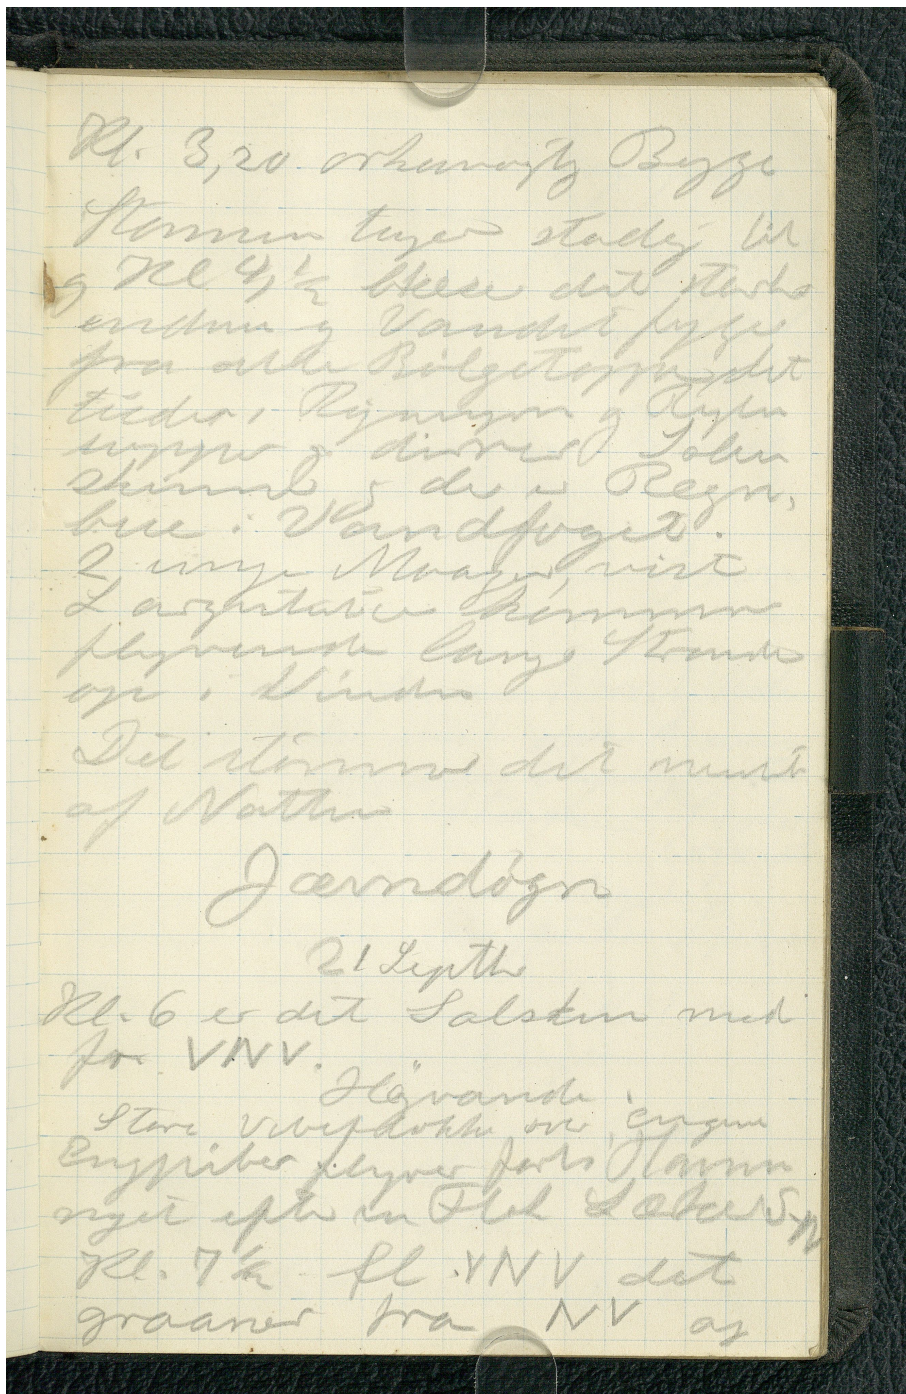 Kl. 3,20 orkanagtig Byge
Stormen tager stadig til
og Kl 4 1/2 blæser det stærkt
endnu og Vandet fyger
fra alle Bølgetoppe, det
tuder, og
og Solen
skinner og der er Regn-
bue i Vandfoget.
2 unge Maager, vist
L argentatus kommer
flyvende langs Stranden
op i Vinden
Det stormer det meste
af Natten
Jævndøgn
21 Septbr
Kl. 6 er det Solskin med
fra VNV.
Højvande
Store Vibeflokke over Engene
Engpiber flyver forbi
noget efter en Flok Lærker S-N
Kl. 7 1/2 fl VNV det
graaner fra NV og